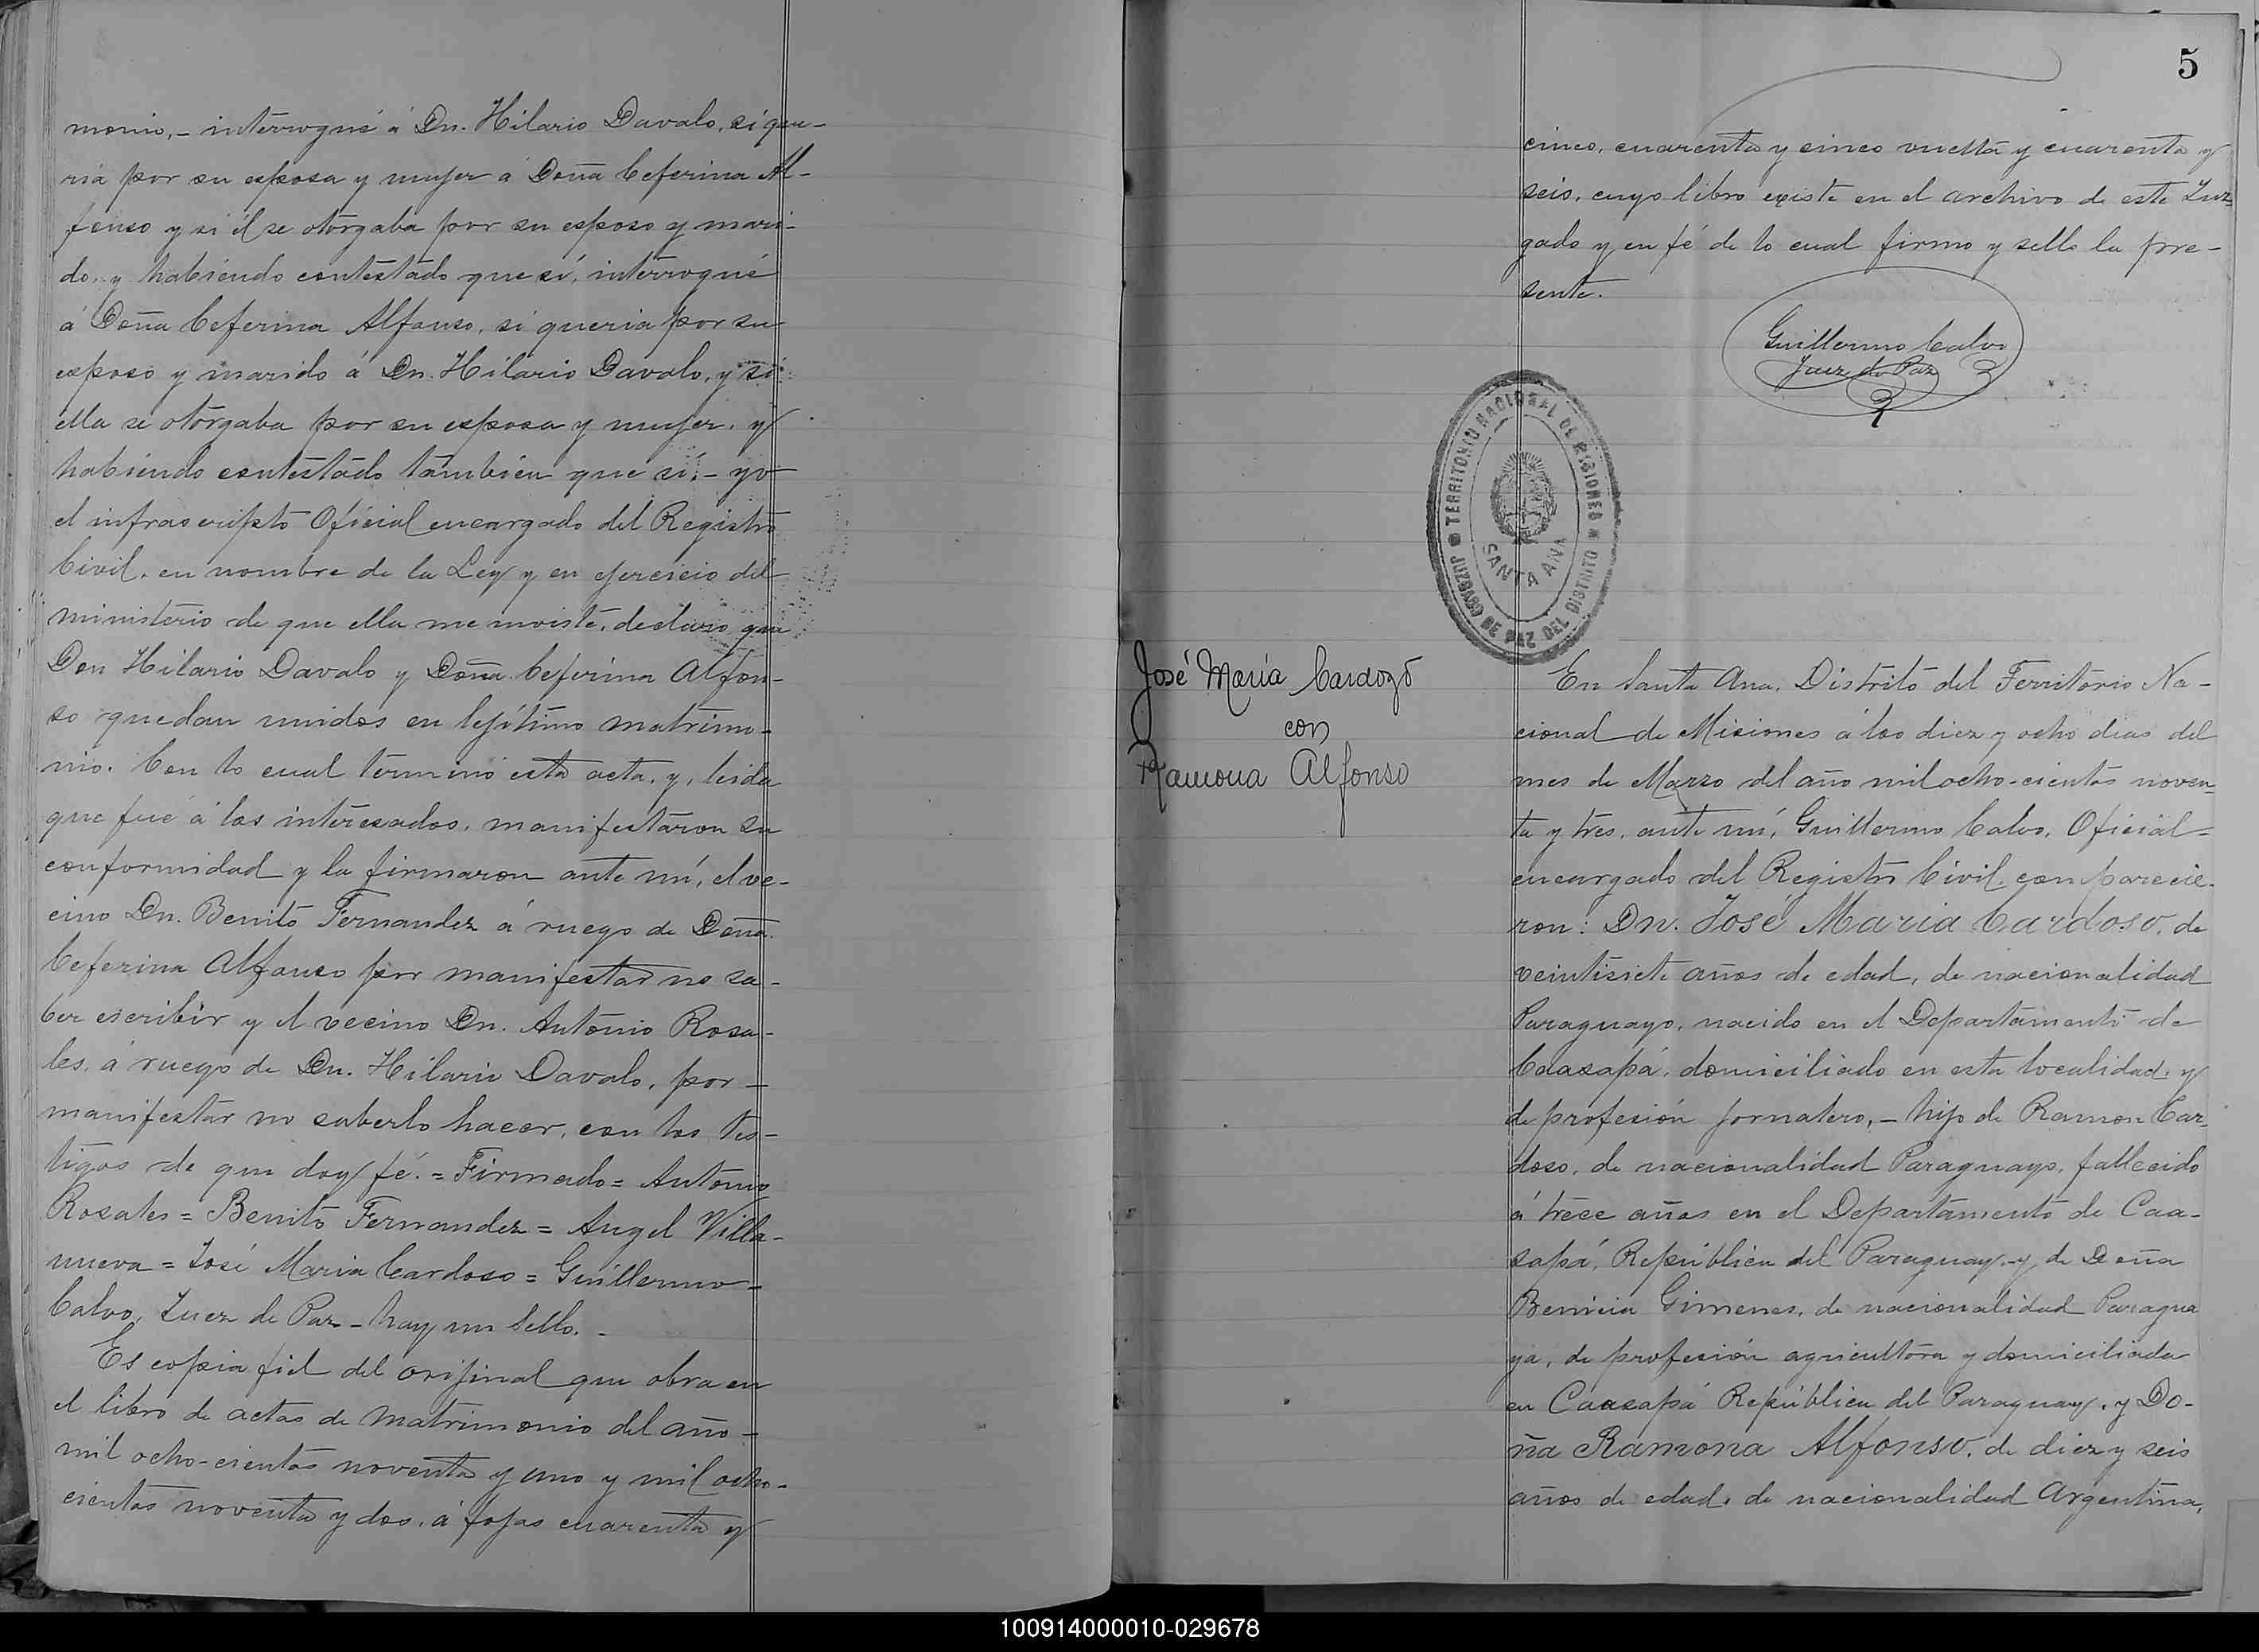 monio,- interrogué á Dn. Hilario Davalo, si que-
ria por su esposa y mujer á Doña Ceferina Al-
fonso y si él se otorgaba por su esposo y mari-
do, y habiendo contestado que sí, interrogué
á Doña Ceferina Alfonso, si queria por su
esposo y marido á Dn. Hilario Davalo, y si
ella se otorgaba por su esposa y mujer, y
habiendo contestado tambien que sí,- yo
el infrascripto Oficial encargado del Registro
Civil, en nombre de la Ley y en ejercicio del
ministerio de que ella me inviste, declaro que
Don Hilario Davalo y Doña Ceferina Alfon-
so quedan unidos en lejítimo matrimo-
nio. Con lo cual terminó esta acta, y, leida
que fué á los interesados, manifestaron su
conformidad y la firmaron ante mí, el ve-
cino Dn. Benito Fernandez á ruego de Doña
Ceferina Alfonso por manifestar no sa-
ber escribir y el vecino Dn. Antonio Rosa-
les, á ruego de Dn. Hilario Davalo, por-
manifestar no saberlo hacer, con los tes-
tigos de que doy fé.=Firmado=Antonio
Rosales=Benito Fernandez=Angel Villa-
nueva=José Maria Cardoso=Guillermo-
Calvo, Juez de Paz-hay un Sello.-
Es copia fiel del orijinal que obra en
el libro de actas de matrimonio del año-
mil ocho-cientos noventa y uno y mil ocho-
cientos noventa y dos, á fojas cuarenta y
5
cinco, cuarenta y cinco vuelta y cuarenta y
seis, cuyo libro existe en el archivo de este Juz-
gado y en fé de lo cual firmo y sello la pre-
sente.
Guillermo Calvo
Juez de Paz
JUZGADO DE PAZ DEL DISTRITO * TERRITORIO NACIONAL DE MISIONES *
SANTA ANA
José María Cardozo
con
Ramona Alfonso
En Santa Ana, Distrito del Territorio Na-
cional de Misiones á los diez y ocho dias del
mes de Marzo del año mil ocho-cientos noven-
ta y tres, ante mí, Guillermo Calvo, Oficial-
encargado del Registro Civil, comparecie-
ron: Dn. José Maria Cardoso, de
veintisiete años de edad, de nacionalidad
Paraguayo, nacido en el Departamento de
Caazapá, domiciliado en esta localidad, y
de profesión jornalero,- hijo de Ramon Car-
doso, de nacionalidad Paraguayo, fallecido
á trece años en el Departamento de Caa-
sapá, República del Paraguay, y de Doña
Benicia Gimenes, de nacionalidad Paragua
ya, de profesión agricultora y domiciliada
en Caasapá República del Paraguay, y Do-
ña Ramona Alfonso, de diez y seis
años de edad, de nacionalidad Argentina,
100914000010-029678